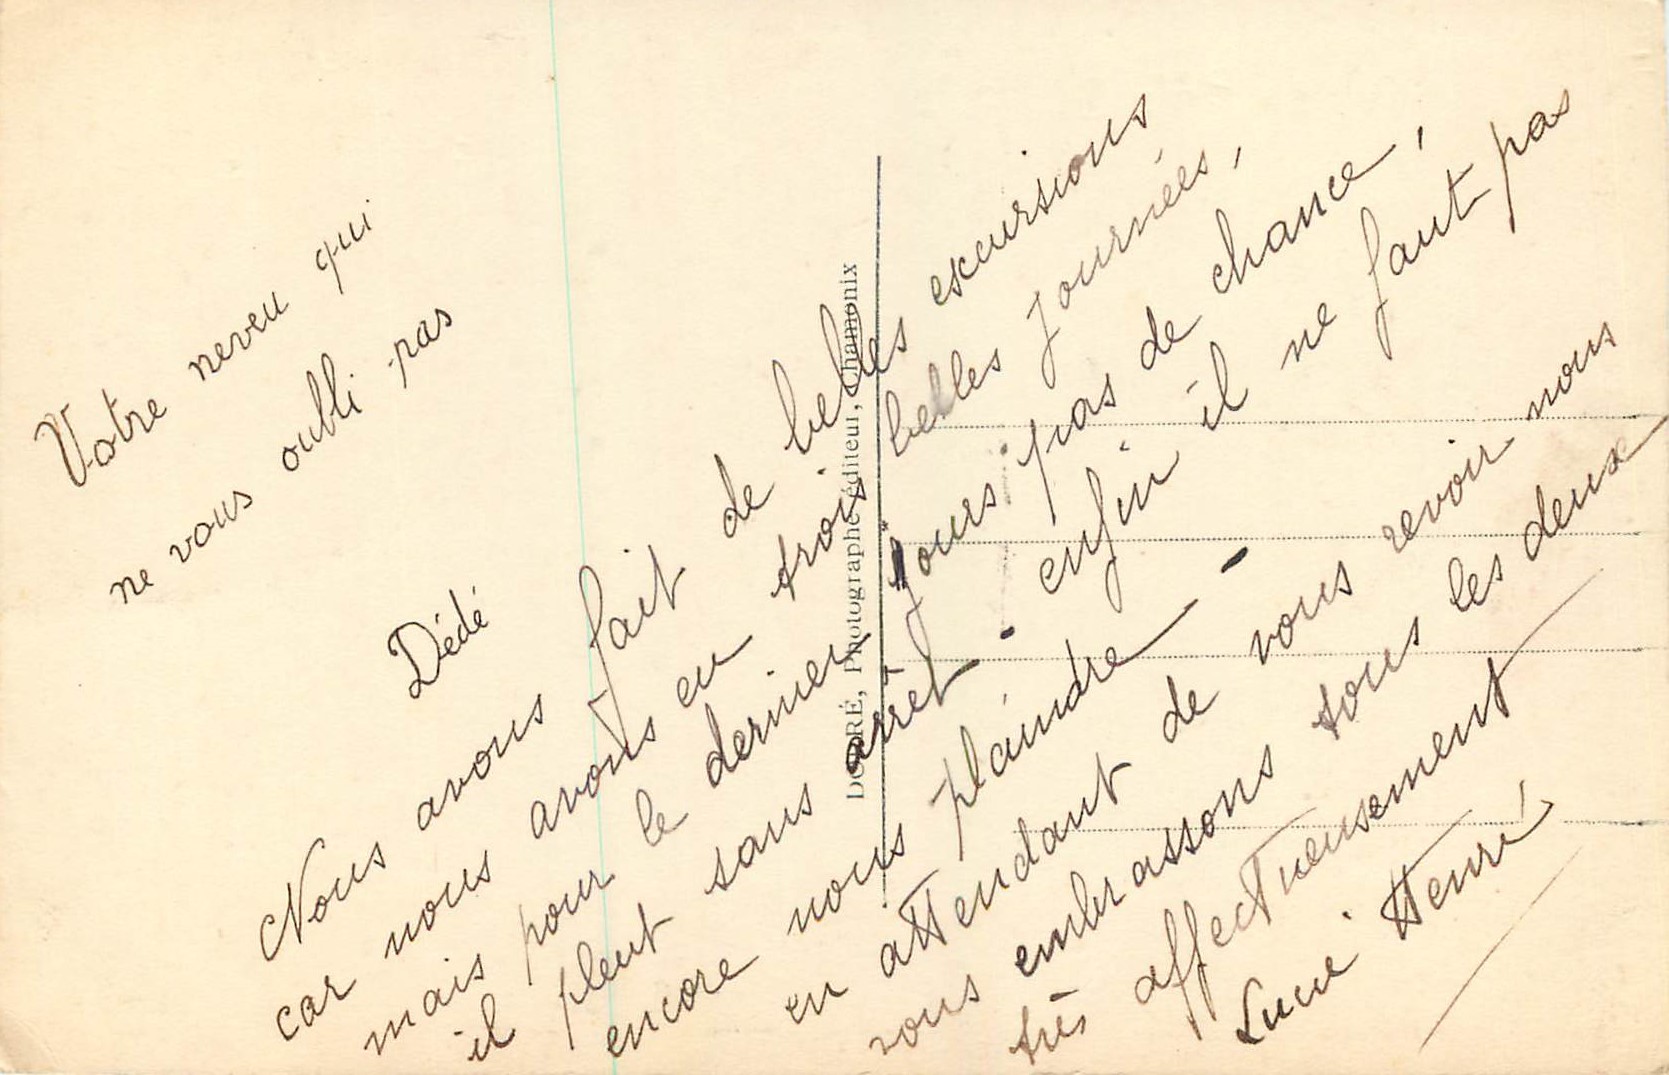 Votre neveu qui
ne vous oubli pas
Dédé
Nous avons fait de belles excursions
car nous avons eu trois belles journées,
mais pour le dernier jours pas de chance,
il pleut sans arrêt - enfin il ne faut pas
encore nous plaindre -
en attendant de vous revoir nous
vous embrassons tous les deux
très affectueusement
Henri
Photographe éditeur, Chamonix